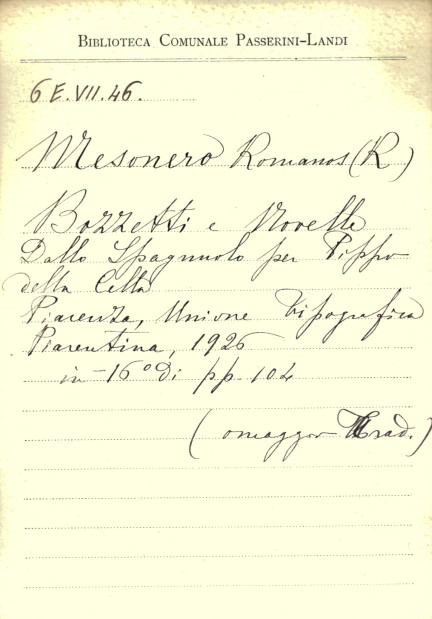 BIBLIOTECA COMUNALE PASSERINI-LANDI
6 E.VII.46.
Mesonero Romanos (R)
Bozzetti e Novelle
Dallo Spagnuolo per Pippo
della Cella
Piacenza, Unione Tipografica
Piacentina, 1926
in-16° di pp 104
(omaggio Trad.)